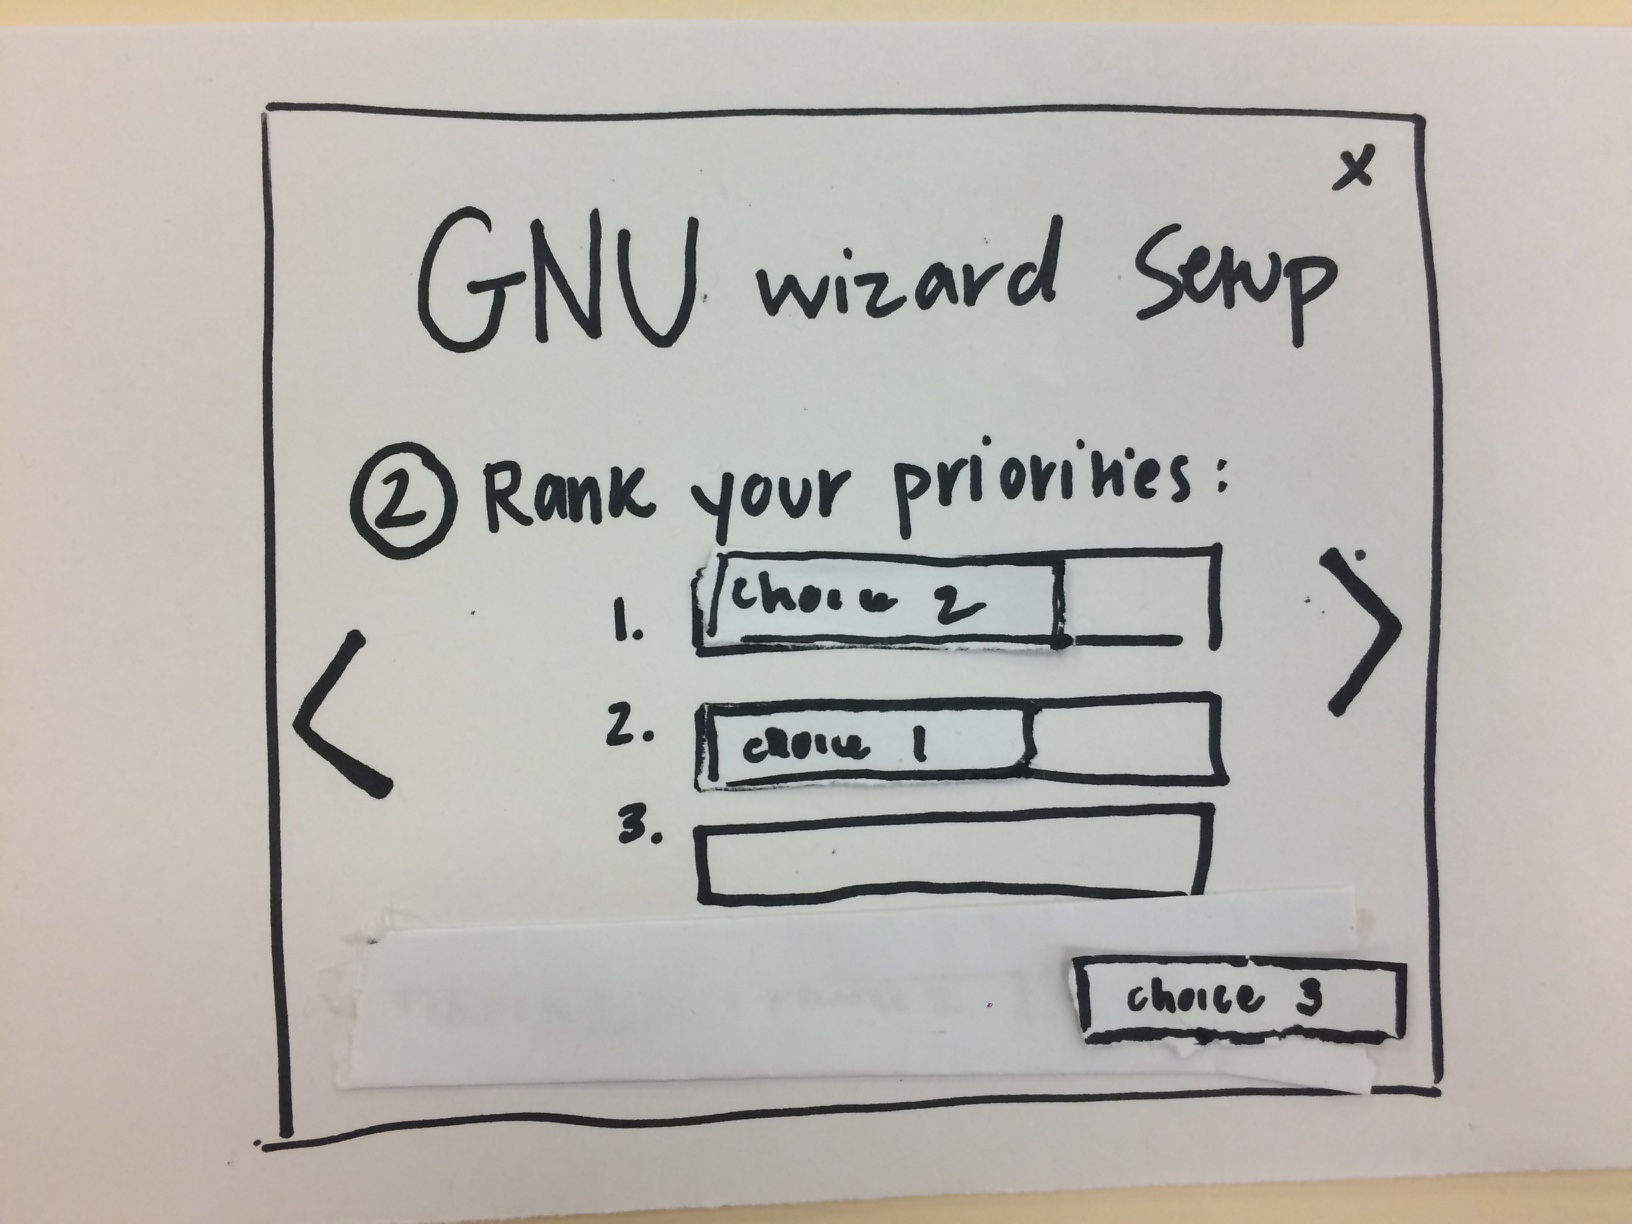 x
GNU wizard Setup
② Rank your priorities:
1. choice 2
2. choice 1
3.
choice 3